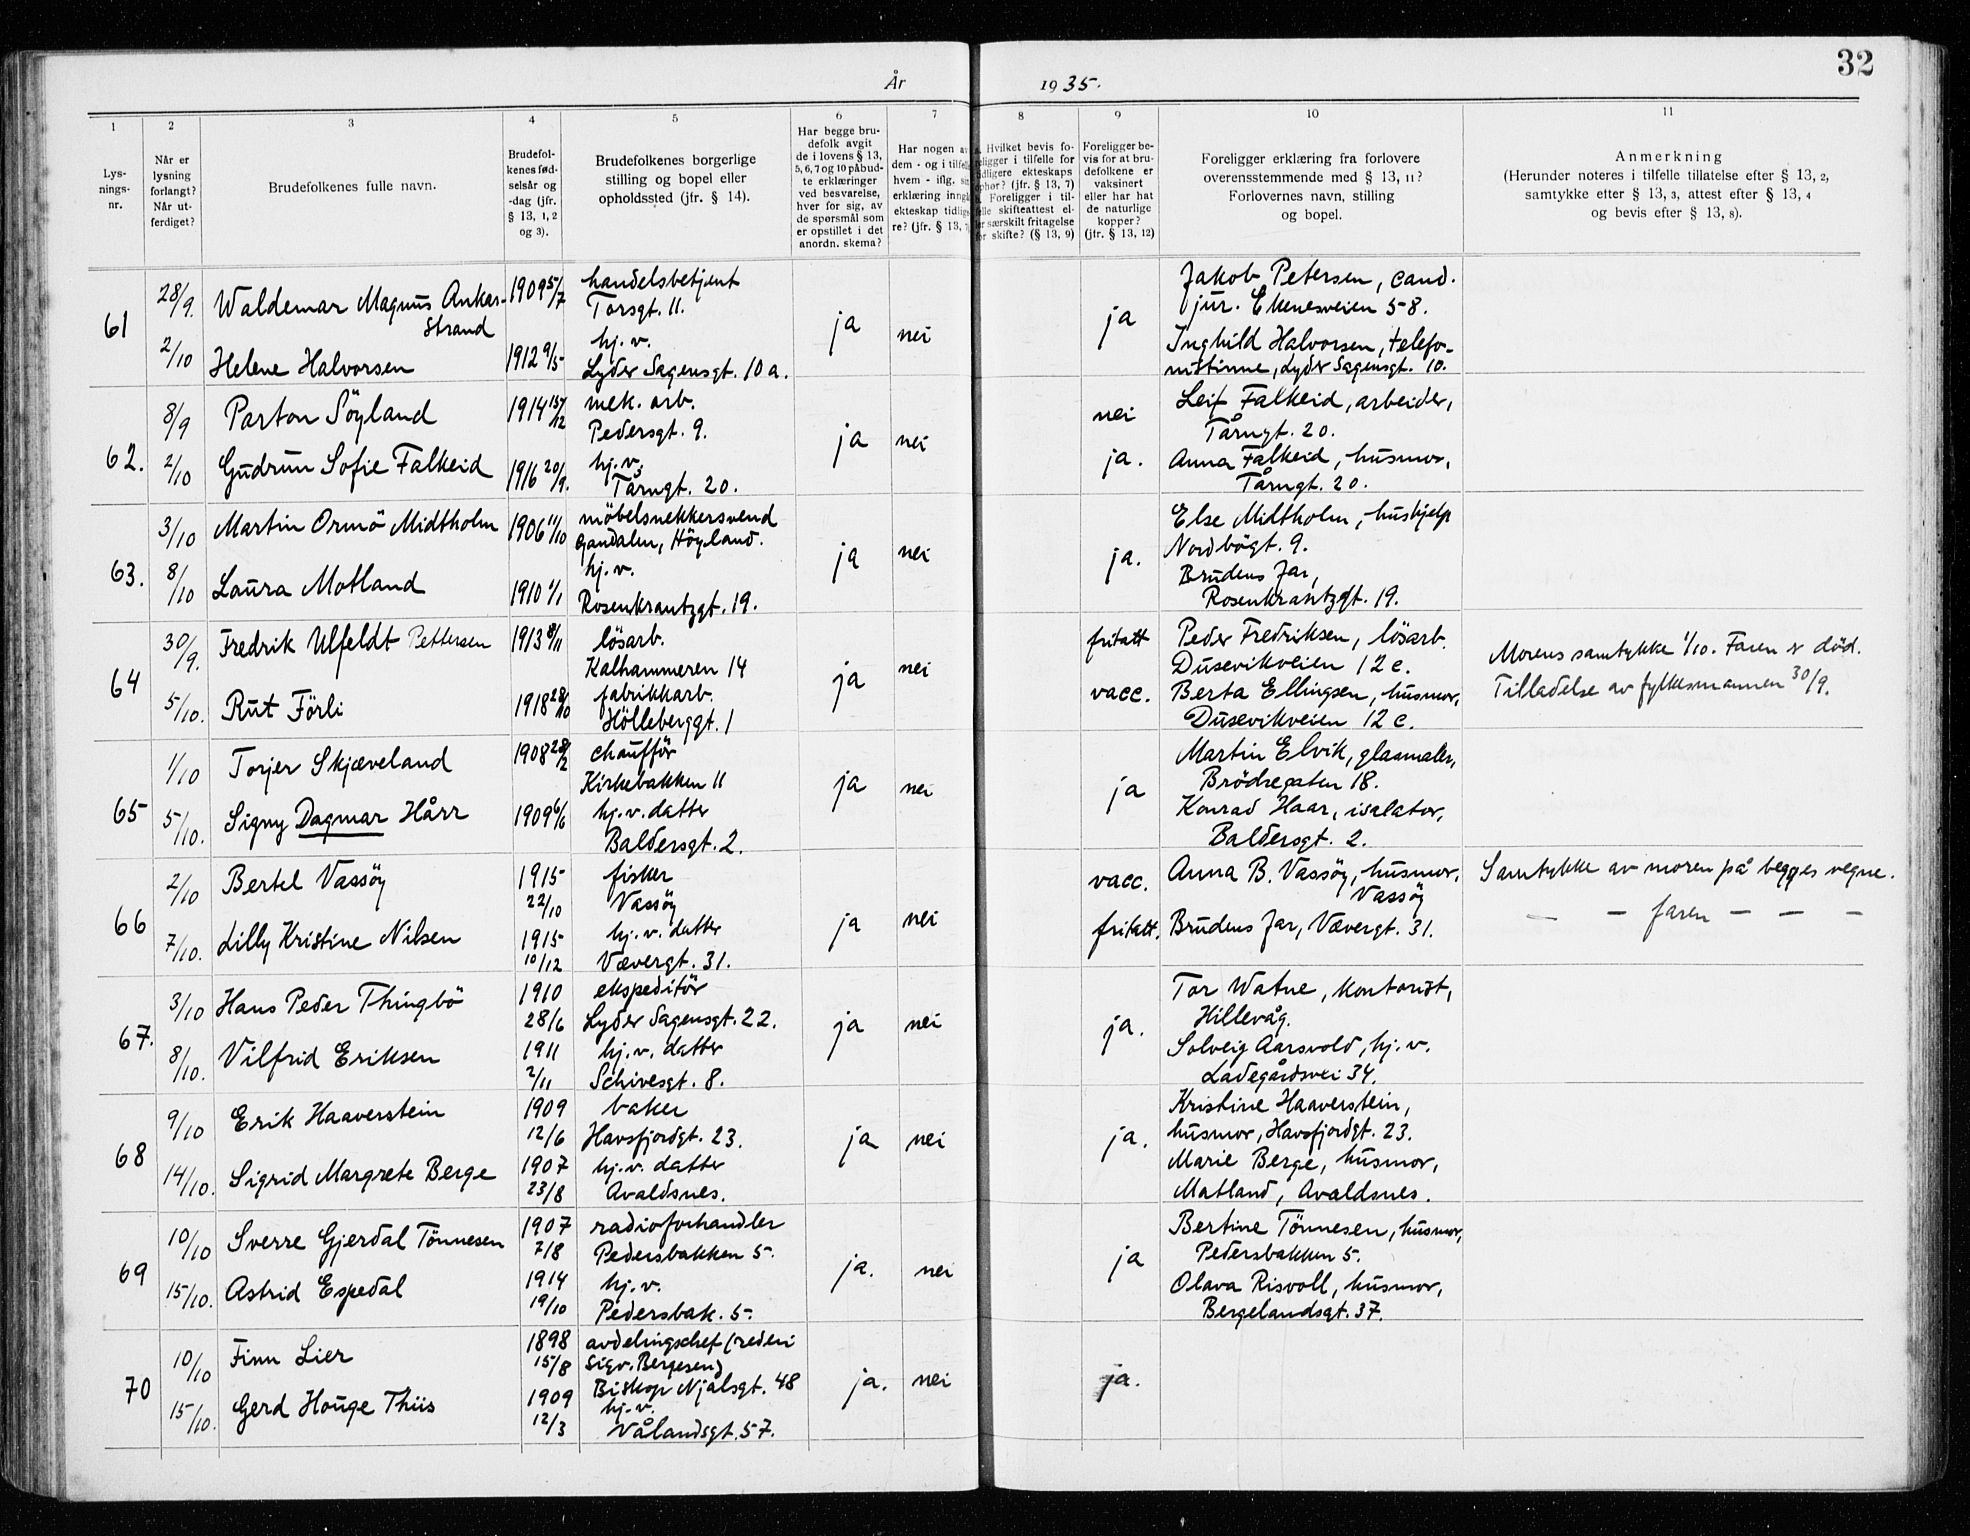 32
År 1935.
1 2 3 4 5 6 7 8 9 10 11
Lysnings-nr.
Når er lysning forlangt? Når utferdiget?
Brudefolkenes fulle navn.
Brudefolkenes fødselsår og -dag (jfr. § 13, 1, 2 og 3).
Brudefolkenes borgerlige stilling og bopel eller opholdssted (jfr. § 14).
Har begge brudefolk avgit de i lovens § 13, 5, 6, 7 og 10 påbudte erklæringer ved besvarelse, hver for sig, av de spørsmål som er opstillet i det anordn. skema?
Har nogen av dem - og i tilfelle hvem - iflg. sin erklæring inngått ekteskap tidligere? (jfr. § 13, 7)
a. Hvilket bevis foreligger i tilfelle for tidligere ekteskaps ophør? (jfr. § 13, 7) b. Foreligger i tilfelle skifteattest eller særskilt fritagelse for skifte? (§ 13, 9)
Foreligger bevis for at brudefolkene er vaksinert eller har hat de naturlige kopper? (jfr. § 13, 12)
Foreligger erklæring fra forlovere overensstemmende med § 13, 11? Forlovernes navn, stilling og bopel.
Anmerkning
(Herunder noteres i tilfelle tillatelse efter § 13, 2, samtykke etter § 13, 3, attest efter § 13, 4 og bevis efter § 13, 8).
61
28/9. Waldemar Magnus Ankar-strand 1909 5/7 handelsbetjent Torsgt. 11.
2/10 Helene Halvorsen 1912 9/5 hj.v. Lyder Sagensgt. 10 a.
ja nei ja
Jakob Petersen, cand. jur. Ekenesveien 58.
Inghild Halvorsen, telefonistinne, Lyder Sagensgt. 10.
62.
8/9 Parton Söyland 1914 15/12 mek. arb. Pedersgt. 9.
2/10 Gudrun Sofie Falkeid 1916 20/9. hj.v. Tårngt. 20.
ja nei nei ja.
Leif Falkeid, arbeider, Tårngt. 20.
Anna Falkeid, husmor, Tårngt. 20.
63.
3/10 Martin Ormö Midtholm 1906 11/10 möbelsnekkersvend Gandalen, Höyland.
8/10 Laura Motland 1910 1/1 hj.v. Rosenkrantzgt. 19.
ja nei ja.
Else Midtholm, hushjelp Nordbögt. 9.
Brudens far, Rosenkrantzgt. 19.
64
30/9. Fredrik Ulfeldt Pettersen 1913 8/11 lösarb. Kalhammeren 14
5/10. Rut Förli 1918 28/10 fabrikkarb. Hölleberggt. 1
ja nei fritatt vacc.
Peder Fredriksen, lösarb. Dusevikveien 12 c.
Berta Ellingsen, husmor, Dusevikveien 12 c.
Morens samtykke 1/10. Faren er död.
Tilladelse av fylkesmannen 30/9.
65
1/10 Torjer Skjæveland 1908 28/2 chaufför Kirkebakken 11
5/10. Signy Dagmar Hårr 1909 6/6 hj.v. datter Baldersgt. 2.
ja nei ja
Martin Elvik, glasmaler, Brödregaten 18.
Konrad Haar, isolatør, Baldersgt. 2.
66
2/10 Bertel Vassöy 1915 22/10 fisker Vassöy
7/10. Lilly Kristine Nilsen 1915 10/12 hj.v. datter Vævergt. 31.
ja nei vacc. fritatt.
Anna B. Vassöy, husmor, Vassöy
Brudens far, Vævergt. 31.
Samtykke av moren på begges vegne.
— — faren — — —
67.
3/10 Hans Peder Thingbö 1910 28/6 ekspeditör Lyder Sagensgt. 22.
8/10. Vilfrid Eriksen 1911 2/11 hj.v. datter Schivesgt. 8.
ja nei ja.
Tor Watne, kontorist, Hillevåg.
Solveig Aarsvold, hj.v. Ladegårdsvei 34.
68
9/10 Erik Haaverstein 1909 12/6 baker Havsfjordgt. 23.
14/10. Sigrid Margrete Berge 1907 23/8 hj.v. datter Avaldsnes.
ja nei ja.
Kristine Haaverstein, husmor, Havsfjordgt. 23.
Marie Berge, husmor, Matland, Avaldsnes.
69
10/10 Sverre Gjerdal Tönnesen 1907 7/8 radioforhandler Pedersbakken 5.
15/10. Astrid Espedal 1914 19/10 hj.v. Pedersbak. 5.
ja. nei ja
Bertine Tönnesen, husmor, Pedersbakken 5.
Olava Risvoll, husmor, Bergelandsgt. 37.
70
10/10 Finn Lier 1898 15/8 avdelingschef (rederi Sigv. Bergesen) Biskop Njålsgt. 48
15/10. Gerd Houge Thiis 1909 12/3 hj.v. Vålandsgt. 57.
ja. nei ja.